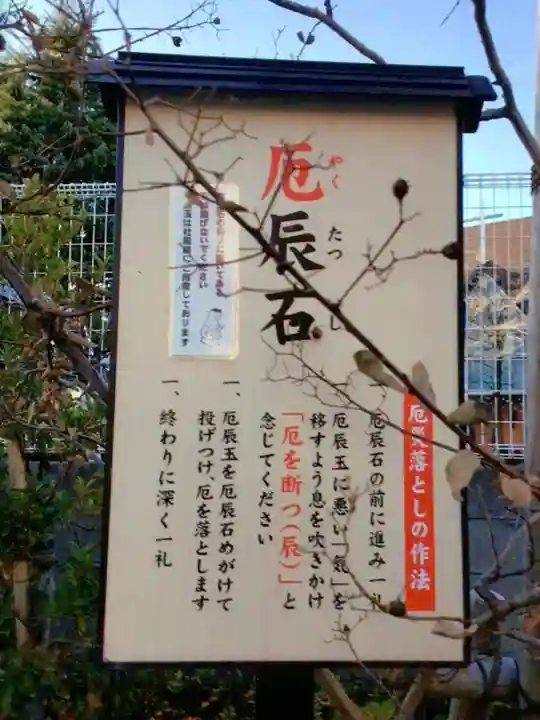 厄辰石
やく
たつ
し
厄災落としの作法
一、厄辰石の前に進み一礼
一、厄辰玉に悪い「気」を
移すよう息を吹きかけ
「厄を断つ(辰)」と
念じてください
一、厄辰玉を厄辰石めがけて
投げつけ、厄を落とします
一、終わりに深く一礼
投げないでください
玉は社務所にご用意しております